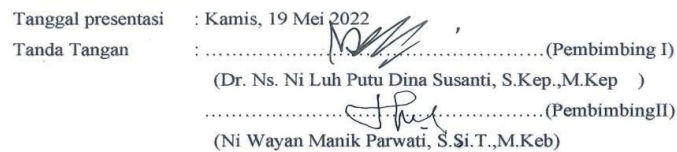 Tanggal presentasi : Kamis, 19 Mei 2022
Tanda Tangan : ........................................................(Pembimbing I)
(Dr. Ns. Ni Luh Putu Dina Susanti, S.Kep.,M.Kep )
........................................................(PembimbingII)
(Ni Wayan Manik Parwati, S.Si.T.,M.Keb)